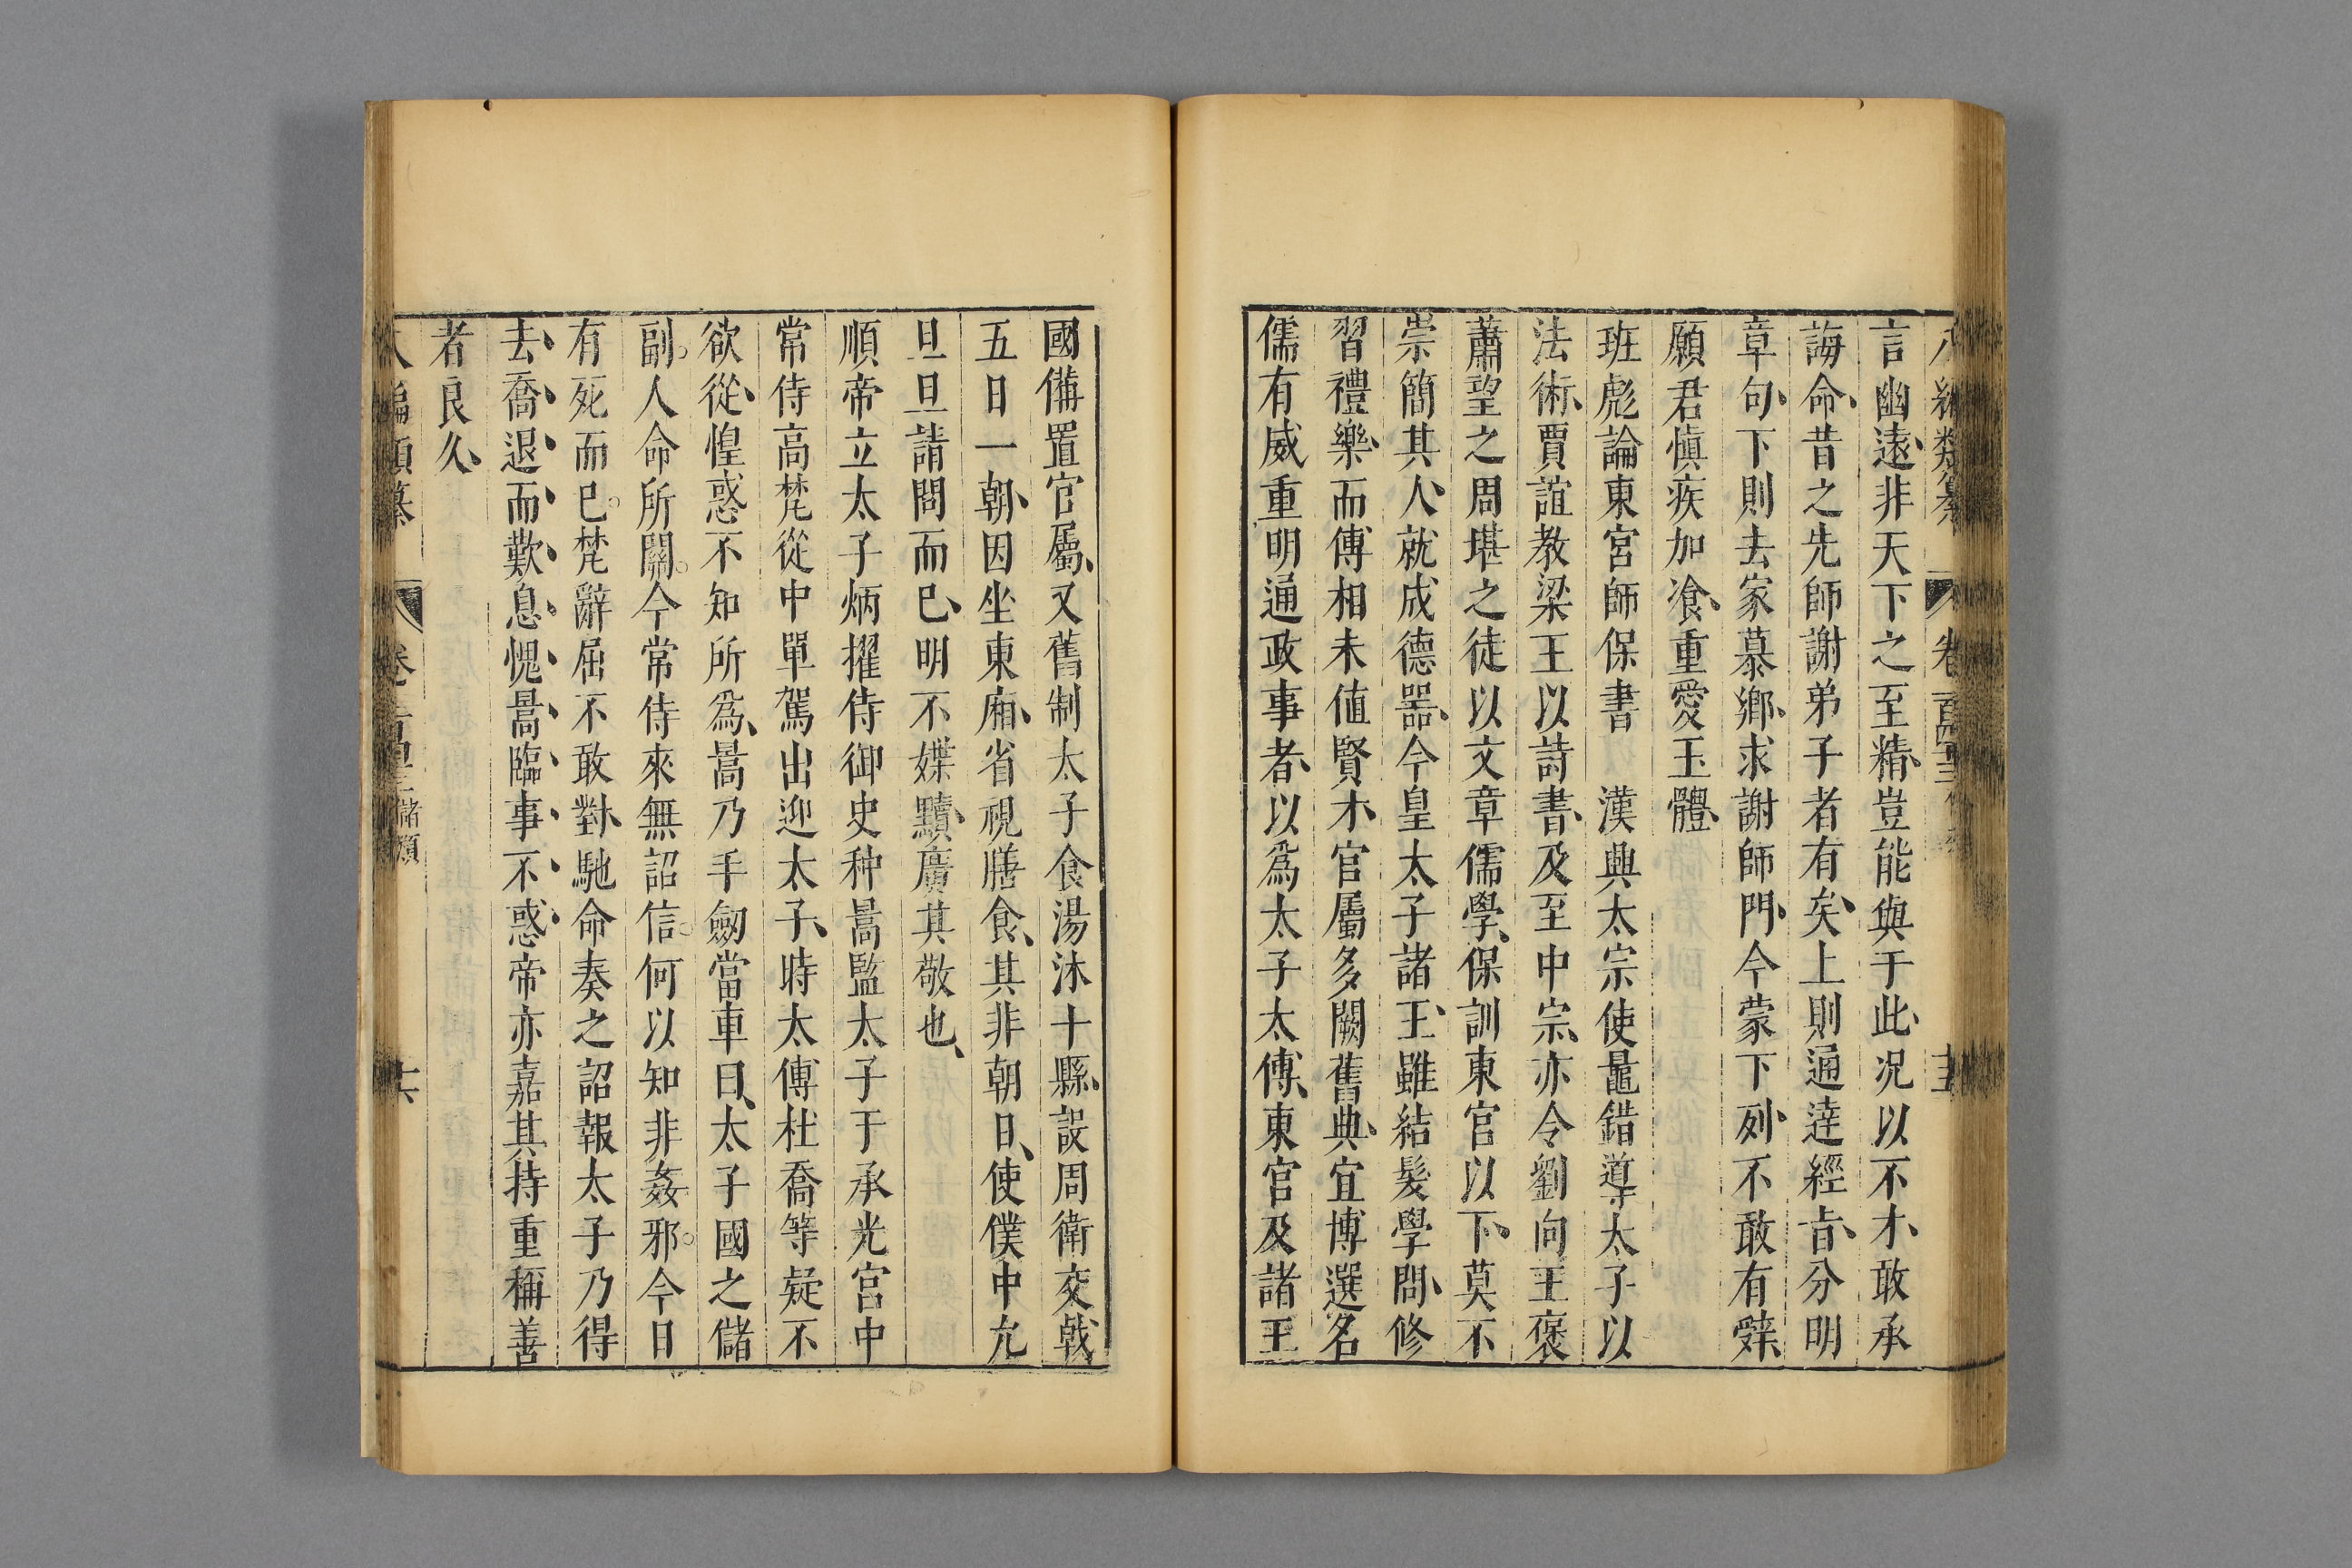 八編類纂 卷百四十三 儲類 十五
言幽遠、非天下之至精、豈能與于此、况以不才、敢承
誨命、昔之先師謝弟子者有矣、上則通達經㫖、分明
章句、下則去家慕鄉、求謝師門、今蒙下列、不敢有辤、
願君慎疾加飡、重愛玉體、
班彪論東宮師保書　漢興太宗使鼂錯導太子以
法術、賈誼教梁王以詩書、及至中宗、亦令劉向王褒
蕭望之周堪之徒以文章儒學、保訓東官以下、莫不
崇簡其人、就成德器、今皇太子諸王、雖結髮學問、修
習禮樂、而傅相未值賢才、官屬多闕舊典、宜博選名
儒有威重明通政事者、以爲太子太傅、東官及諸王
國備置官屬、又舊制太子食湯沐十縣、設周衛交戟
五日一朝、因坐東廂、省視膳食、其非朝日、使僕中允
旦旦請問而已、明不媟黷、廣其敬也、
順帝立太子炳擢侍御史种暠監太子于承光宮中
常侍高梵從中單駕出迎太子、時太傅杜喬等疑不
欲從、惶惑不知所爲、暠乃手劒當車曰、太子國之儲
副。人命所關。今常侍來無詔信。何以知非姦邪。今日
有死而已。梵辭屈不敢對、馳命奏之詔報太子乃得
去、喬退而歎息愧暠臨事不惑、帝亦嘉其持重稱善
者良久、
八編類纂 卷百四十三 儲類 十六